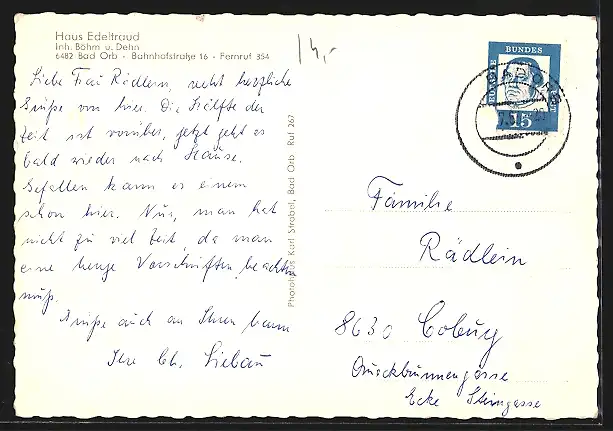 Haus Edeltraud
Inh. Böhm u. Dehn
6482 Bad Orb - Bahnhofstraße 16 - Fernruf 354
14,-
Liebe Frau Rädlein, recht herzliche
Grüße von hier. Die Hälfte der
Zeit ist vorüber, jetzt geht es
bald wieder nach Hause.
Gefallen kann es einem
schon hier. Nur, man hat
nicht zu viel Zeit, da man
eine Menge Vorschriften beachten
muß.
Grüße auch an Ihren Mann
Ihre Ch. Liebau
Photohaus Karl Strobel, Bad Orb Ruf 267
DEUTSCHE
BUNDES
POST
15
Familie
Rädlein
8630 Coburg
Queckbrunnengasse
Ecke Steingasse